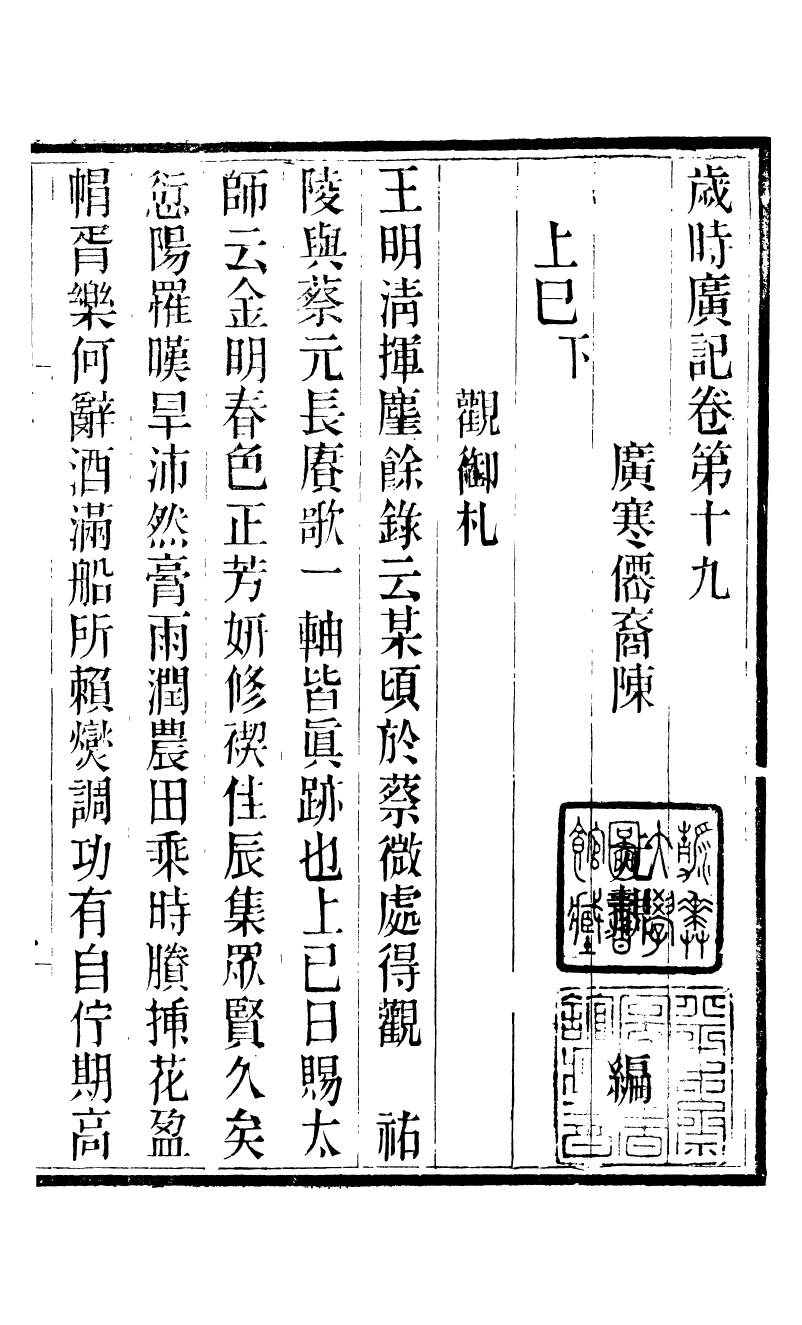 歲時廣記卷第十九
廣寒僊裔陳
編
上巳下
觀御札
王明淸揮麈餘錄云某頃於蔡微處得觀　祐
陵與蔡元長賡歌一軸皆眞跡也上巳日賜太
師云金明春色正芳姸修禊佳辰集眾賢久矣
愆陽罹嘆旱沛然膏雨潤農田乘時賸揷花盈
帽胥樂何辭酒滿船所賴爕調功有自佇期高